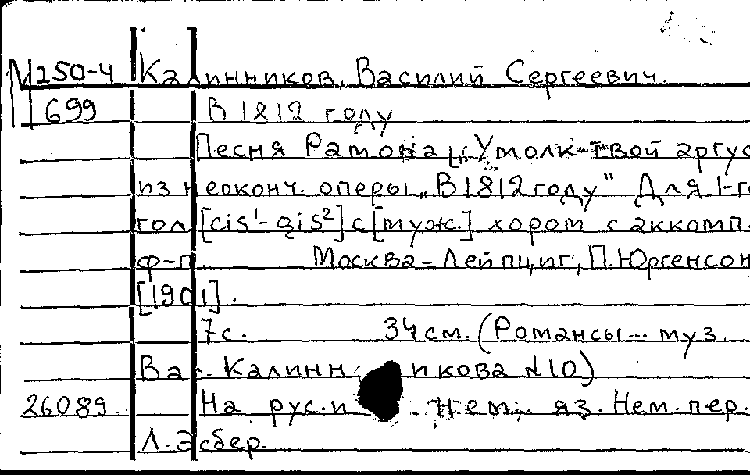 М 250-4 Калинников, Василий Сергеевич.
699 В 1812 году
Песня Рамона „Умолк твой аргус
из неоконч. оперы „В 1812 году" Для 1-го
гол. [cis¹-gis²] с [муж.] хором с аккомп.
ф-п. Москва-Лейпциг, П. Юргенсон
[1901].
7с. 34см. (Романсы... муз.
Вас. Калинникова №10)
26089 На рус. и нем. яз. Нем. пер.
Л. Эсбер.